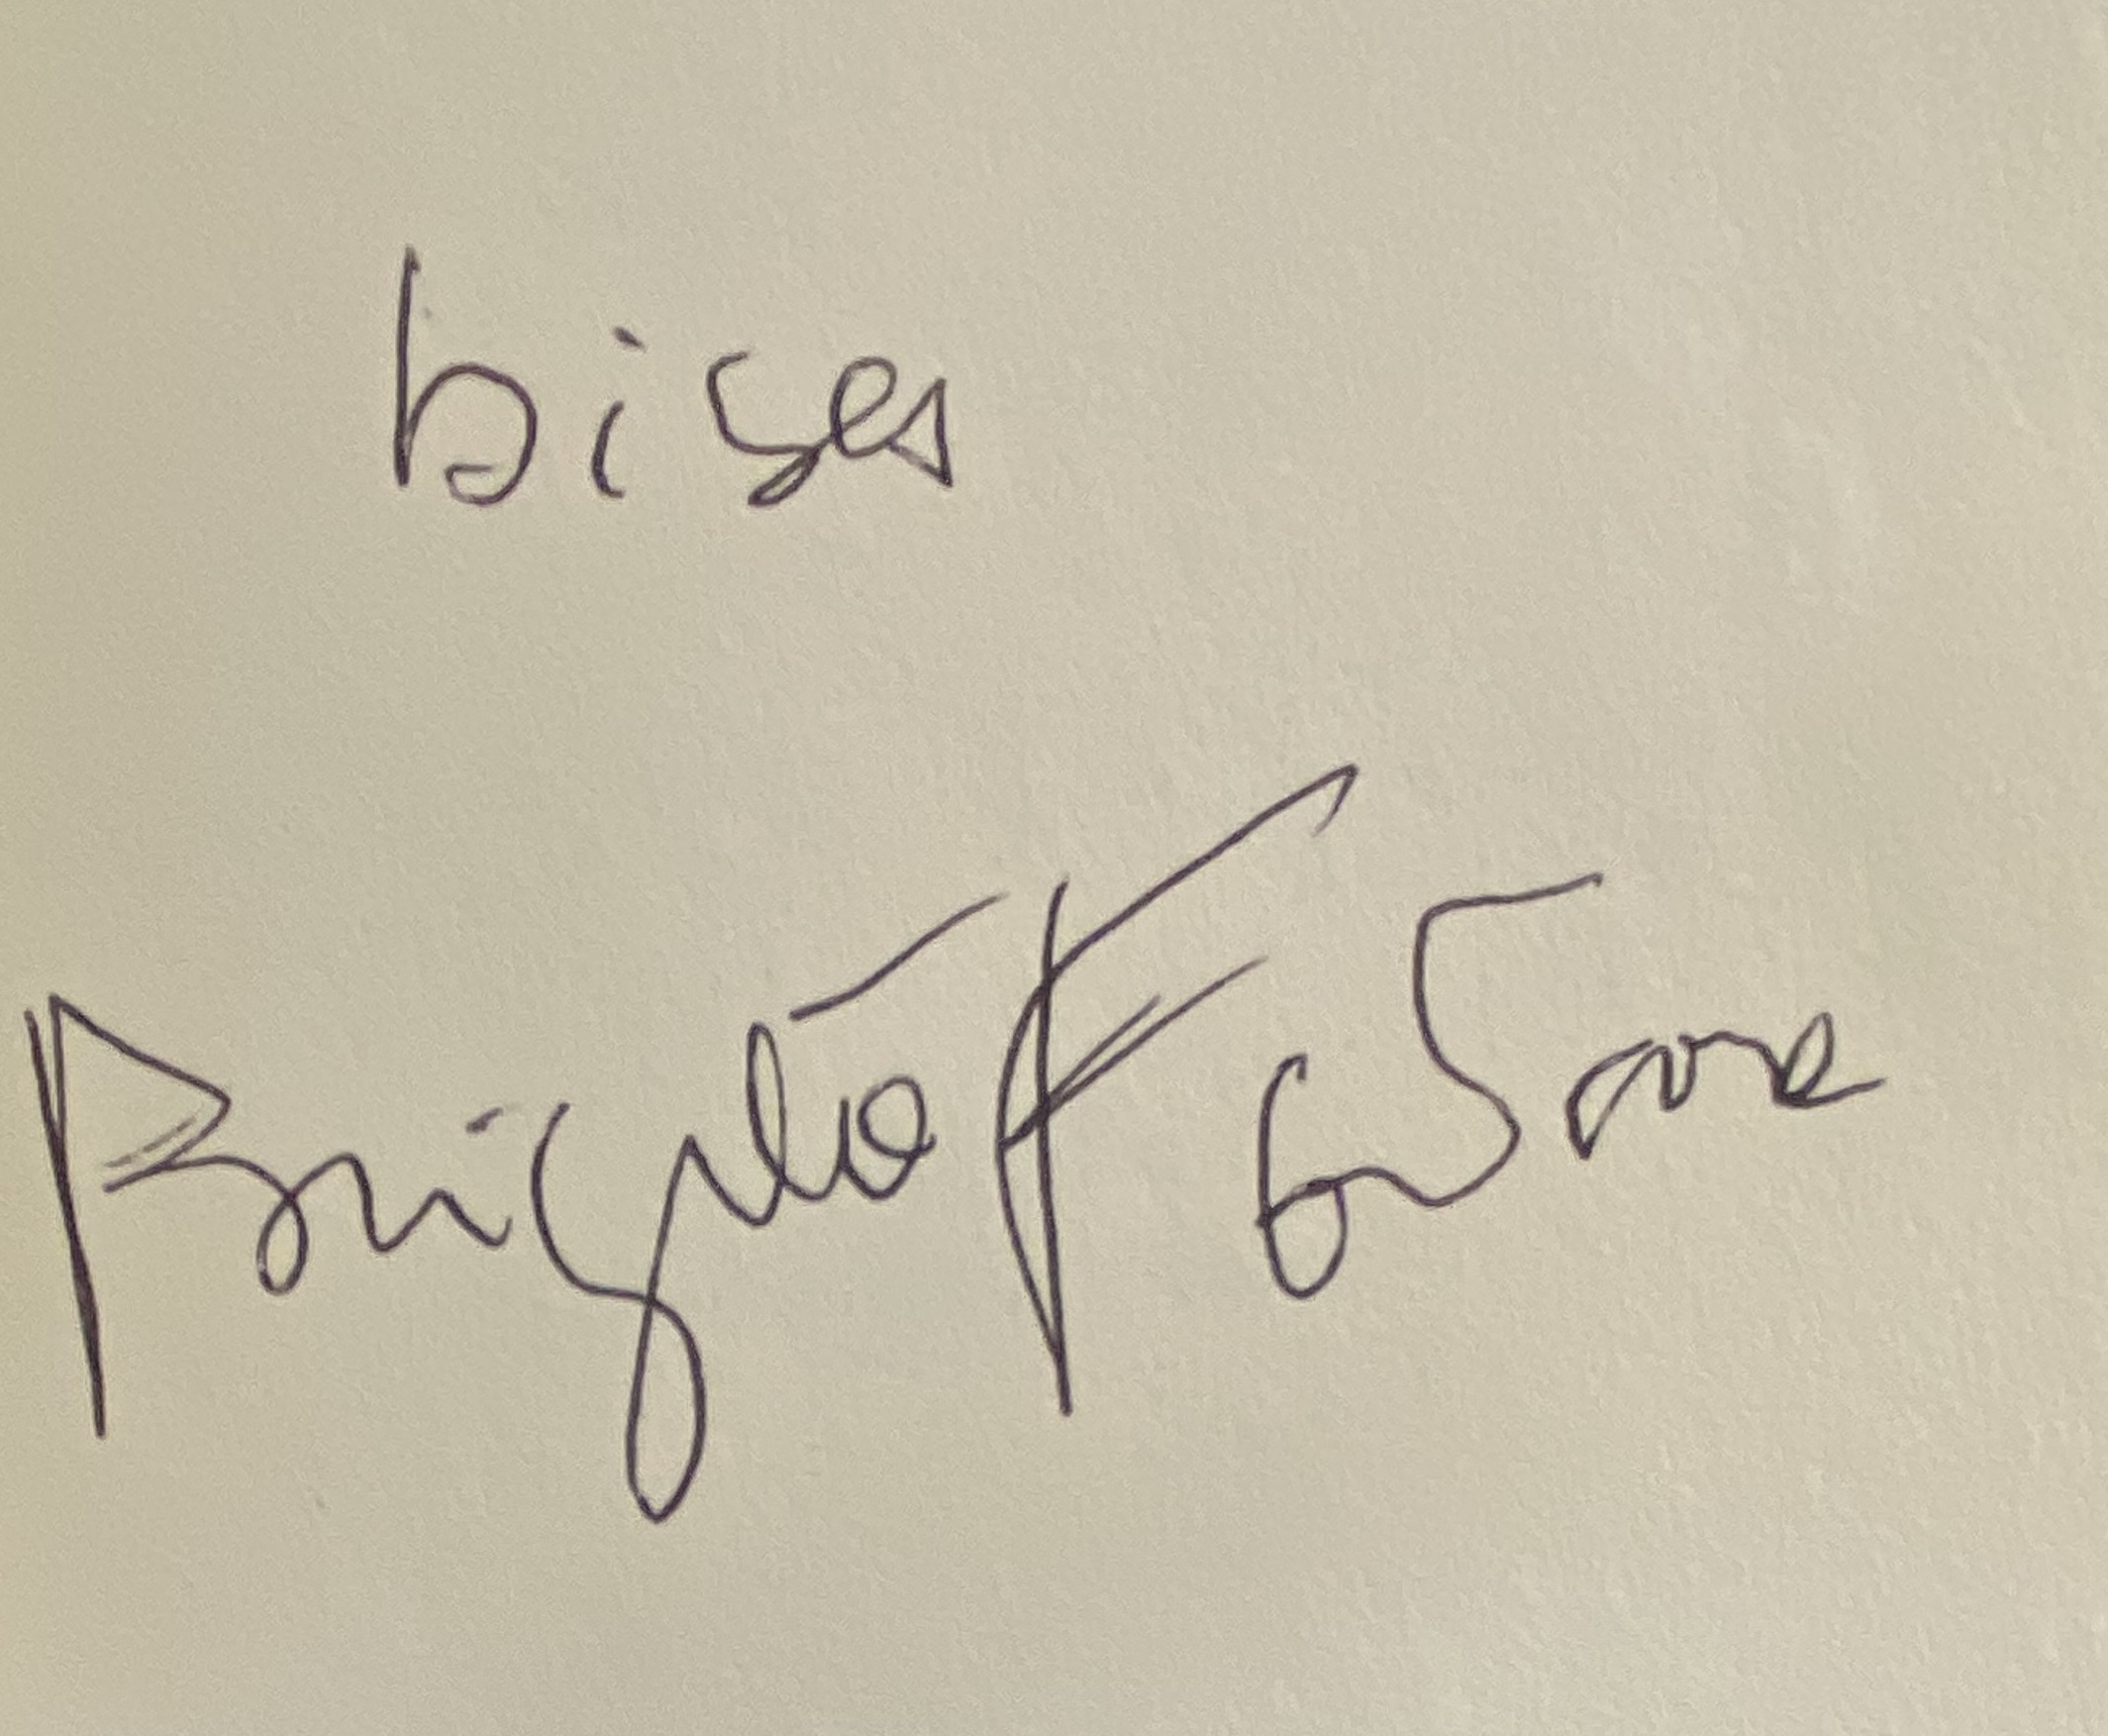 bises
Brigitte Fontaine